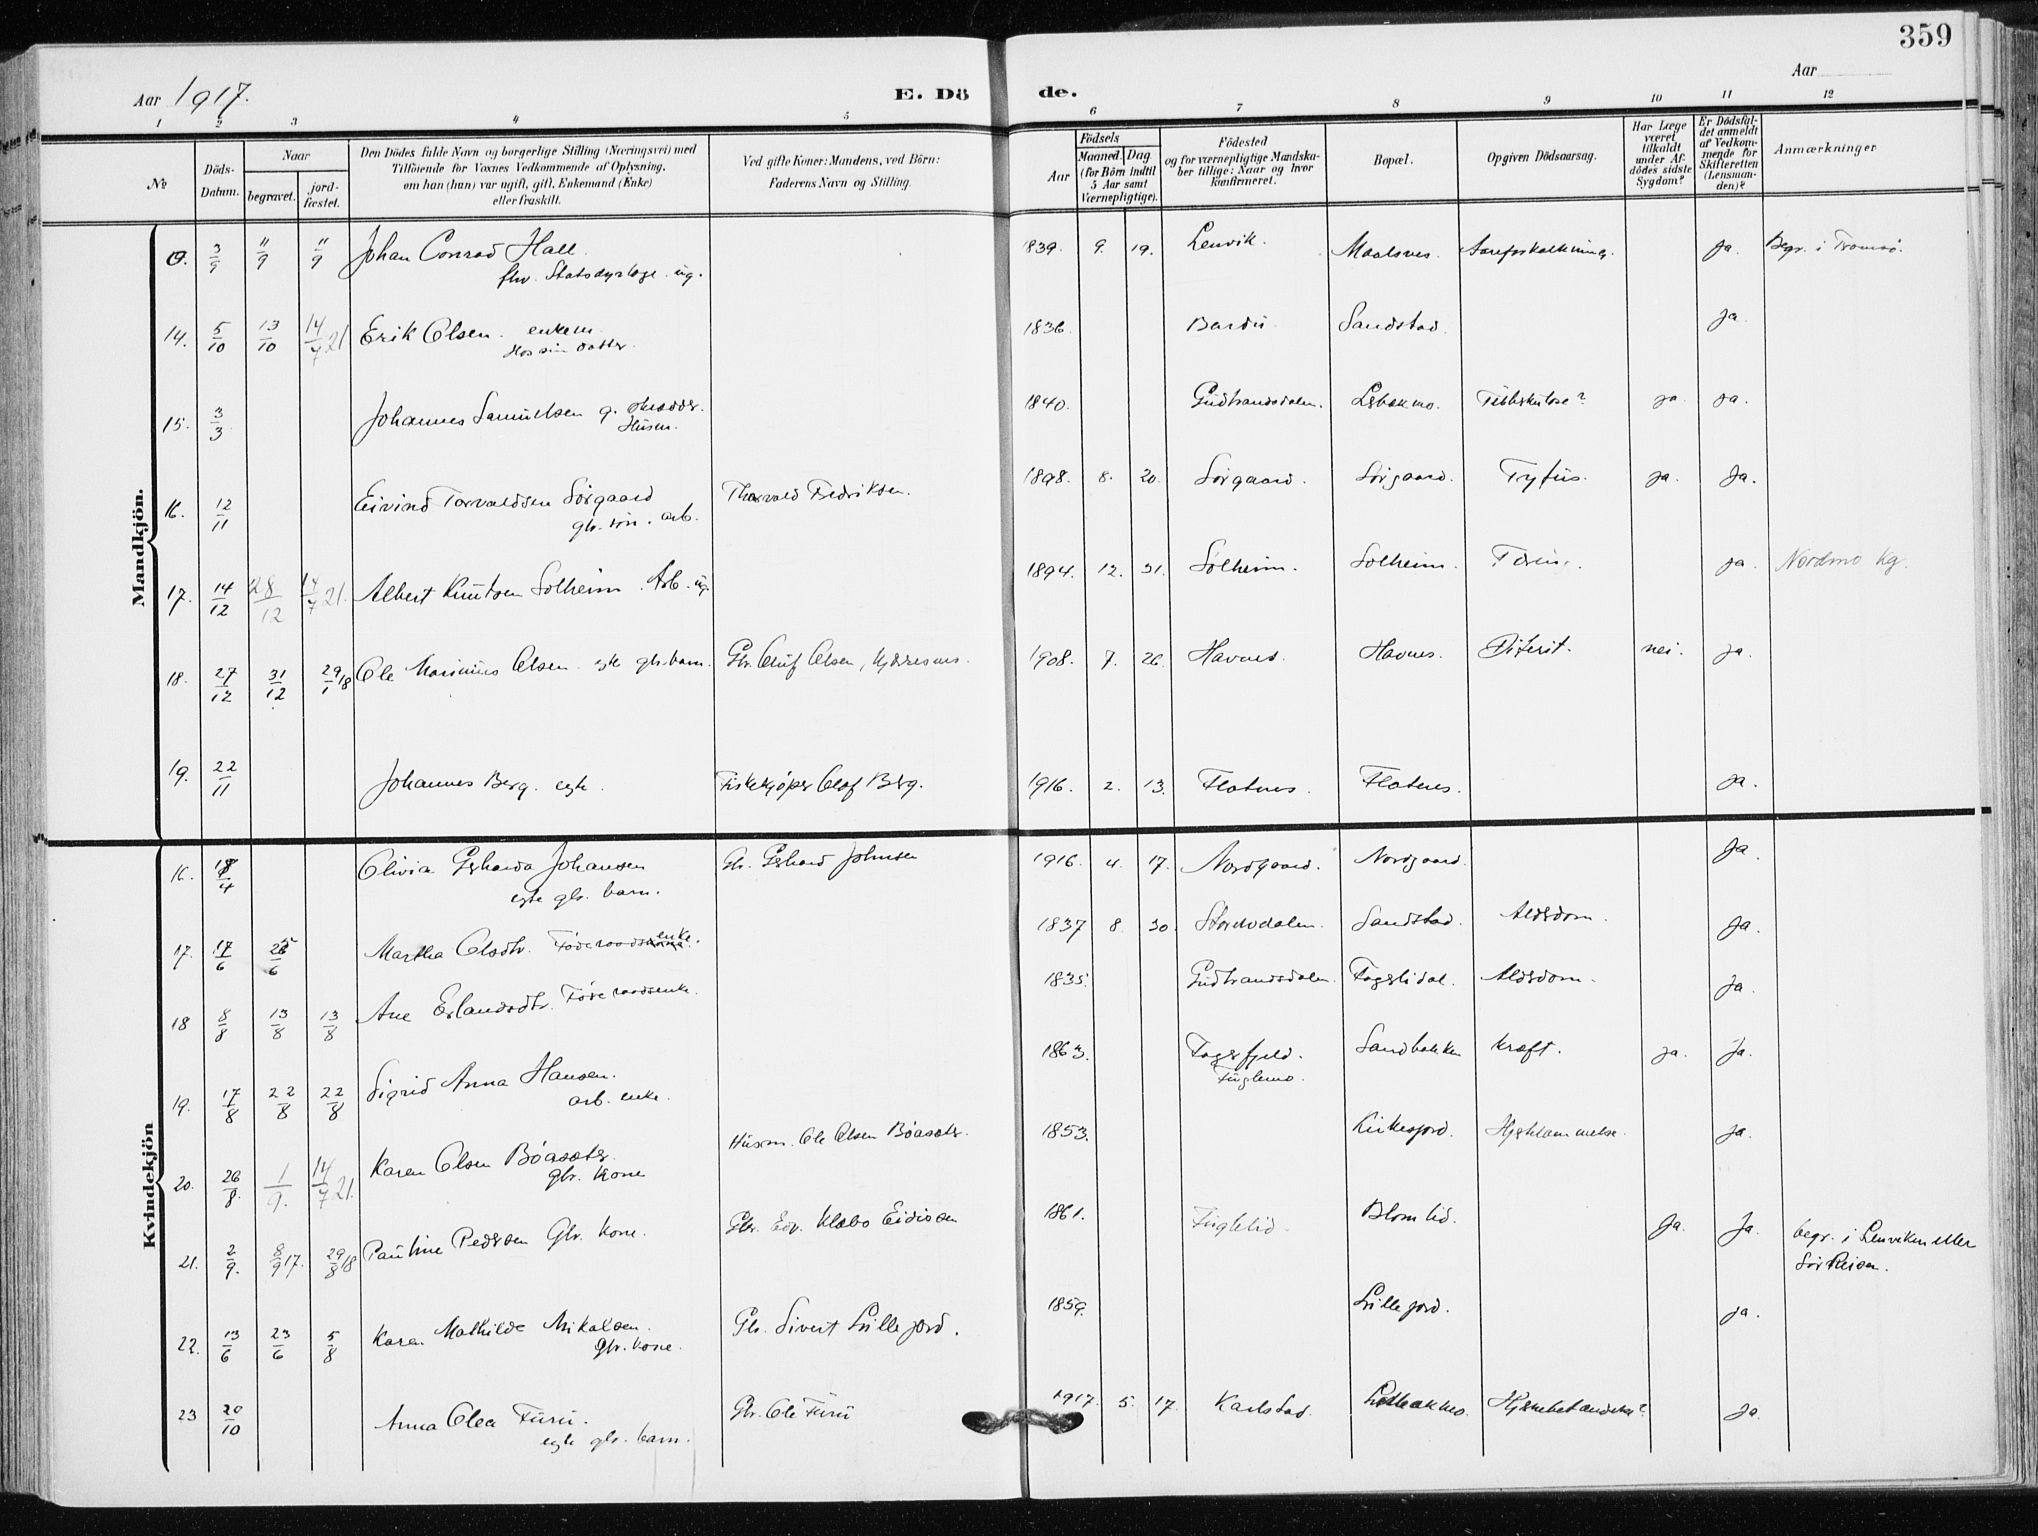 359
Aar 1917.
E. Dö
de.
Aar
1 2 3 4 5 6 7 8 9 10 11 12
№
Döds-Datum.
Naar
begravet.
jord-fæstet.
Den Dödes fulde Navn og borgerlige Stilling (Næringsvei) med
Tilföiende for Voxnes Vedkommende af Oplysning,
om han (hun) var ugift, gift, Enkemand (Enke)
eller fraskilt.
Ved gifte Koner: Mandens, ved Börn:
Faderens Navn og Stilling.
Födsels
Aar
Maaned. Dag
(for Börn indtil
5 Aar samt
Værnepligtige).
Födested
og for værnepligtige Mandska-
ber tillige: Naar og hvor
konfirmeret.
Bopæl.
Opgiven Dödsaarsag.
Har Læge
været
tilkaldt
under Af-
dödes sidste
Sygdom?
Er Dödsfal-
det anmeldt
af Vedkom-
mende for
Skifteretten
(Lensman-
den)?
Anmærkninger
Mandkjön.
3/9 11/9 11/9 Johan Conrad Hall 1839. 9. 19. Lenvik. Maalsnes. Aareforkalkning. Ja. Begr. i Tromsø.
fhv. Statsdyrlæge. ug.
14. 5/10 13/10 14/7 21 Erik Olsen. enkem. 1836. Bardu Sandstad. Ja.
Hos sin datter.
15. 3/3 Johannes Samuelsen g. 1840. Gudbrandsdalen. Tuberkulose? ja. Ja.
16. 12/11 Eivind Torvaldsen Sørgaard Thorvald Fredriksen. 1898. 8. 20. Sørgaard. Sørgaard. Tyfus. ja. Ja.
gbr. søn. arb.
17. 14/12 28/12 14/7 21. Albert Knutsen Solheim. Arb. ug. 1894. 12. 31. Solheim. Solheim. ja. Nordmo kg.
18. 27/12 31/12 29/1 18 Ole Marinius Olsen. egte gbr. barn. Gbr. Oluf Olsen, 1908. 7. 26. Havnes. Havnes. Difterit. nei. ja.
19. 22/11 Johannes Berg. egte. Fiskekjøper Olaf Berg. 1916. 2. 13. Flatnes. Flatnes. Ja.
Kvindekjön
16. 18/4 Olivia Gerharda Johansen Gbr. Gerhard Johnsen 1916. 4. 17. Nordgaard. Nordgaard. Ja.
egte gbr. barn.
17. 17/6 26/6 Martha Olsdtr. Føderaadsenke. 1837 8. 30. Sandstad. Alderdom. Ja.
18 8/8 13/8 13/8 Ane Erlandsdtr. Føderaadsenke. 1835. Gudbrandsdalen. Fagerlidal. Alderdom. Ja.
19. 17/8 22/8 22/8 Sigrid Anna Hansen. 1863. Fagerfjeld. Sandbakken Kræft. ja. Ja.
arb. enke. Fuglemo.
20. 26/8. 1/9. 14/7 21. Karen Olsen Bøasæter. Husm. Ole Olsen Bøasæter. 1853. Kirkesjord. Hjertelammelse. Ja.
gbr. Kone
21. 2/9. 8/9 17. 29/8 18 Pauline Pedersen Gbr. Kone. Gbr. Edv. Klæbo Eidissen 1861. Fuglelid. Blomlid. Ja. Ja. begr. i Lenviken eller
Sør Reisen.
22. 13/6 23/6 5/8 Karen Mathilde Mikalsen. Gbr. Sivert Lillejord. 1859. Lillejord. ja.
Gbr. kone.
23 20/10 Anna Olea Furu. Gbr. Ole Furu 1917. 5. 17. Karlstad. Ja.
egte gbr. barn.